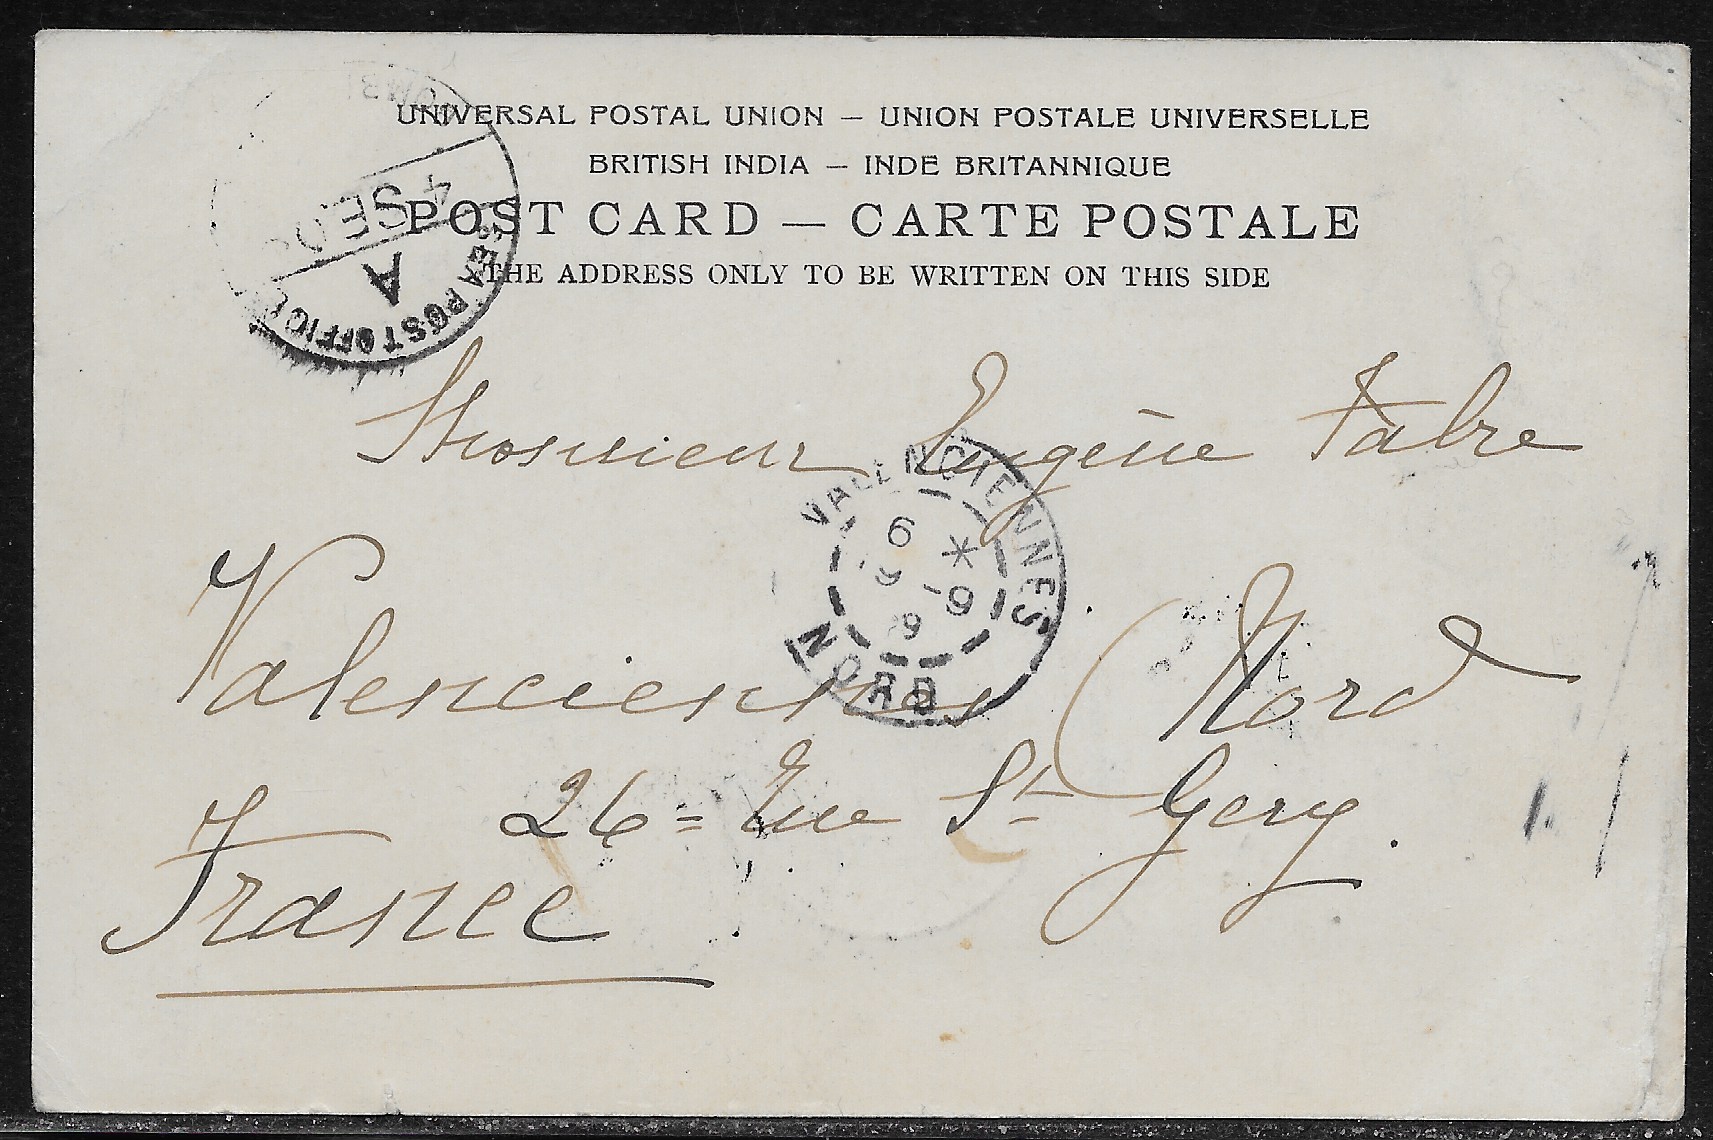 UNIVERSAL POSTAL UNION — UNION POSTALE UNIVERSELLE
BRITISH INDIA — INDE BRITANNIQUE
POST CARD — CARTE POSTALE
THE ADDRESS ONLY TO BE WRITTEN ON THIS SIDE
SEA POST OFFICE
A
4 SE
Monsieur Eugène Fabre
VALENCIENNES
6 *
9-9
NORD
Valenciennes (Nord
26 = Rue St Gery.
France